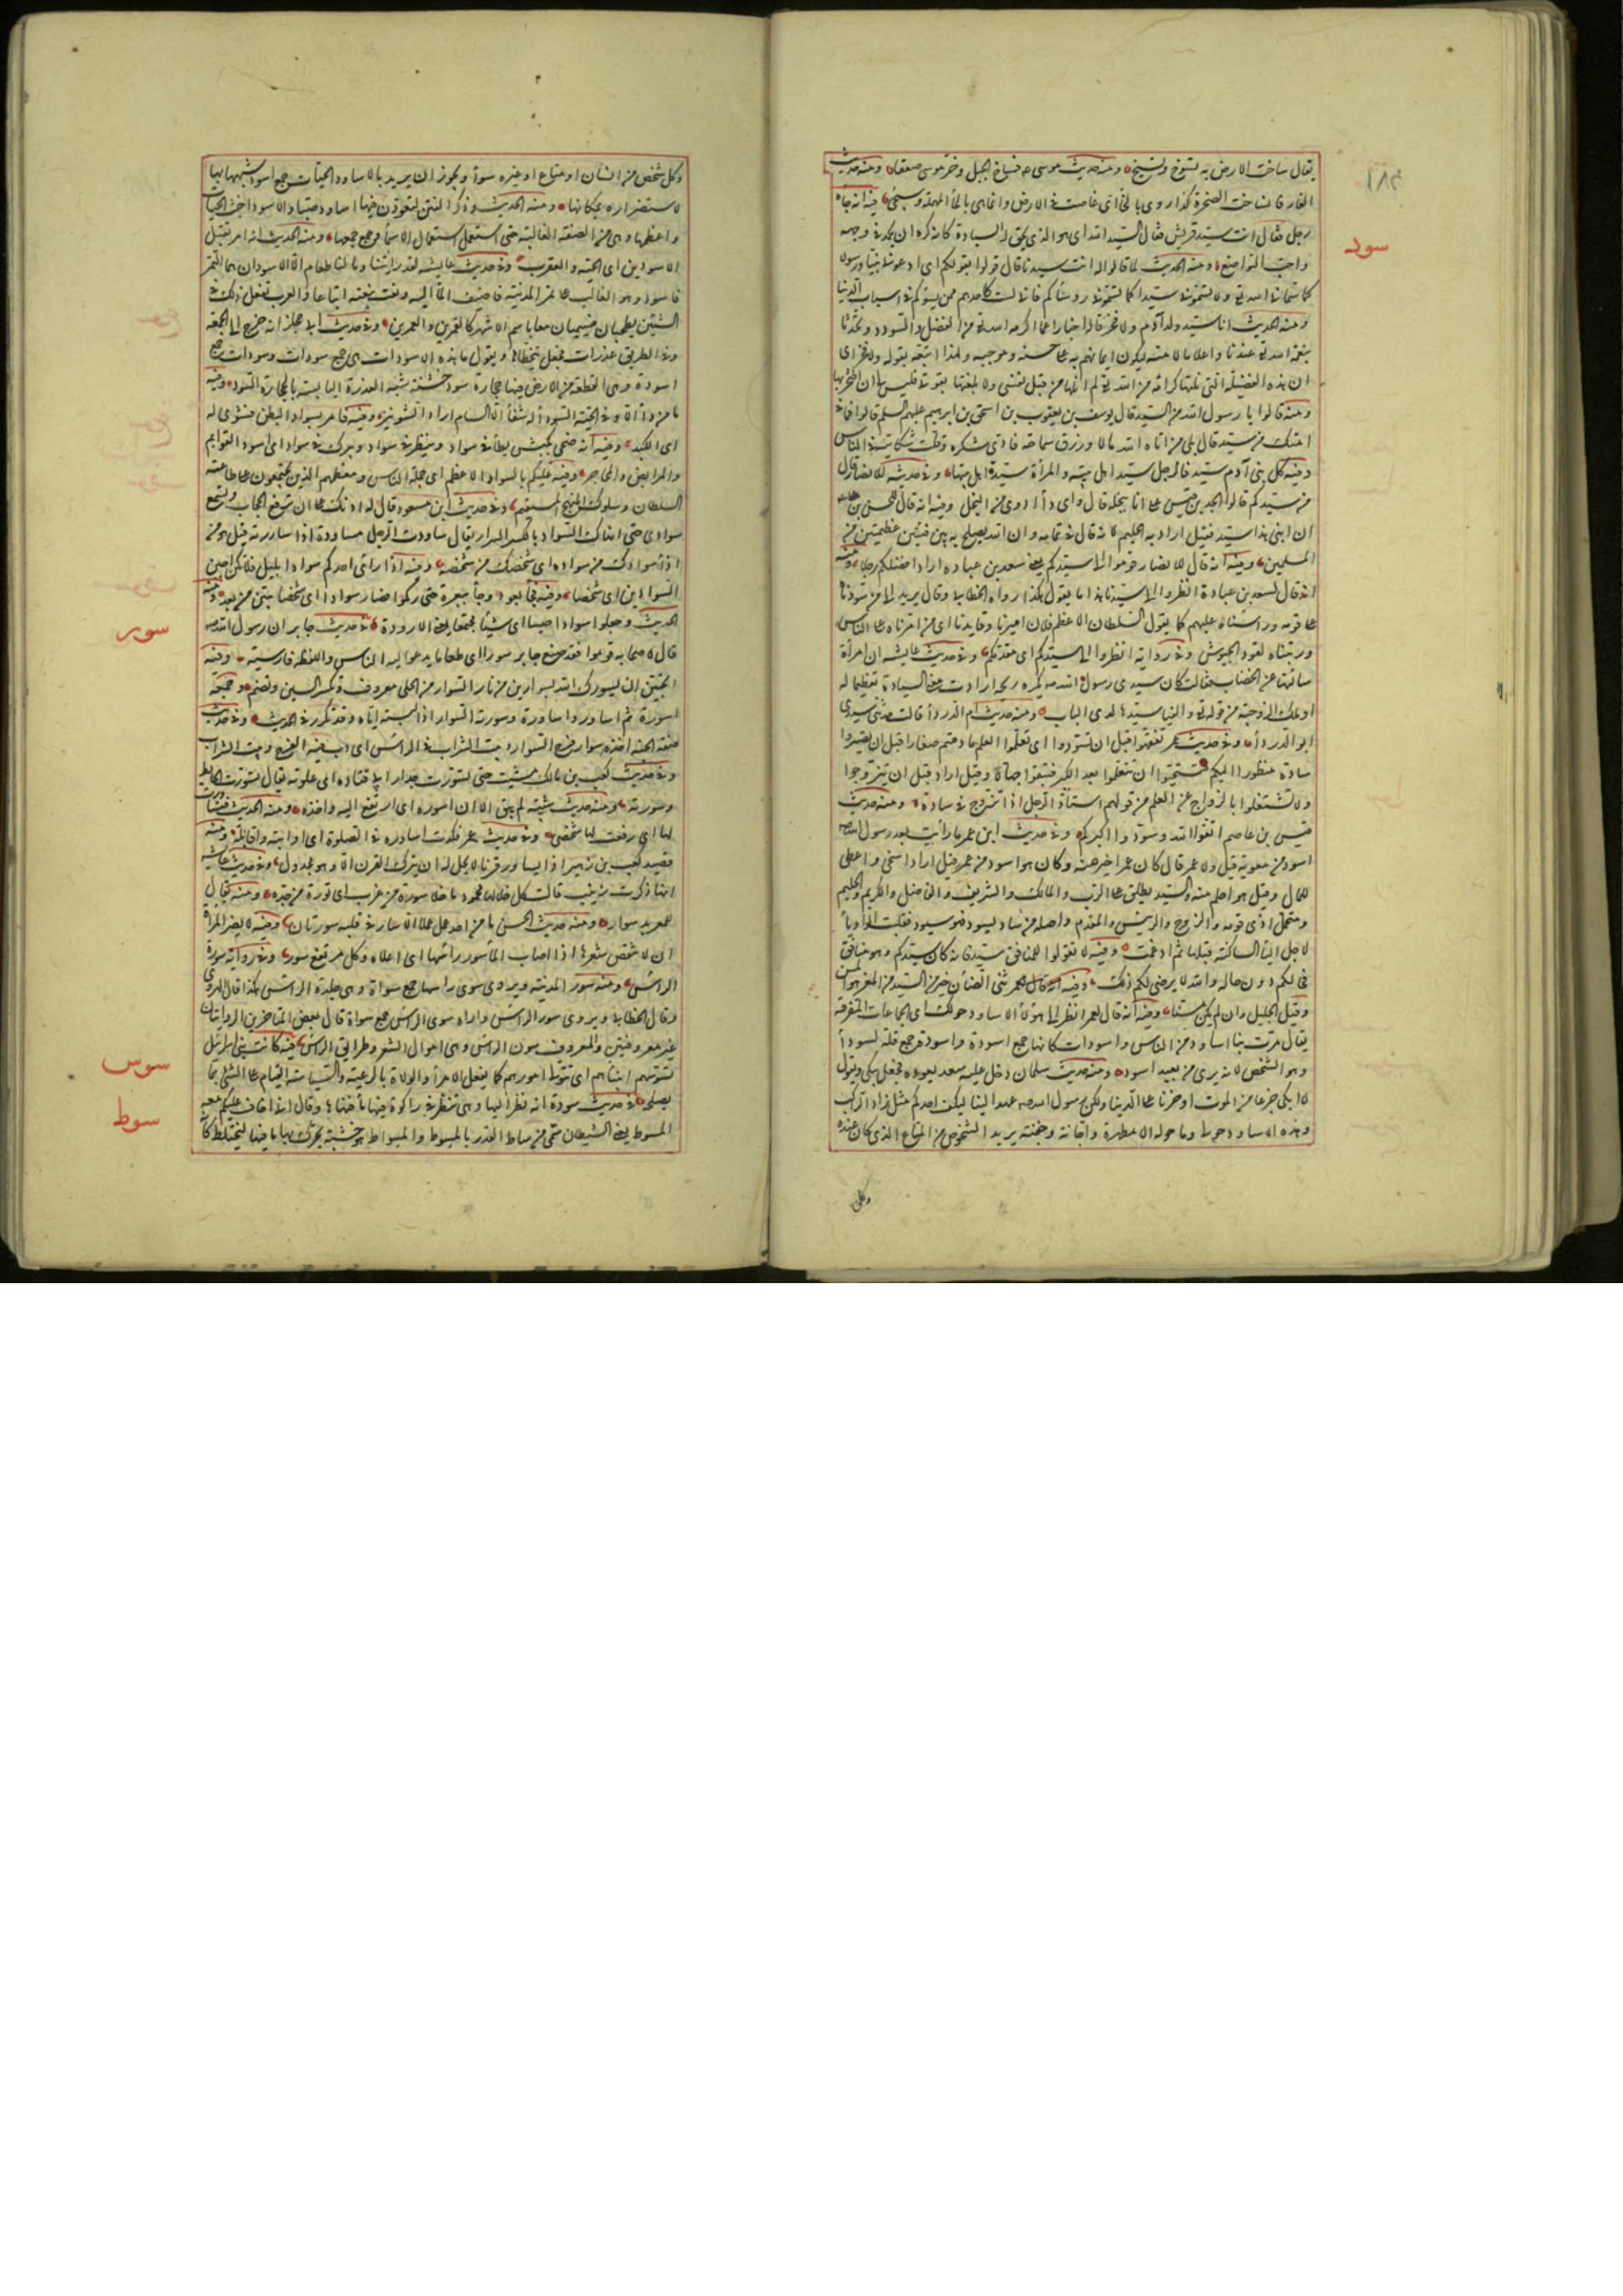 يقال ساخت الارض به تسوخ وتسيخ ومنه حديث موسى عم فساخ الجبل وخر موسى صعقا ومنه حديث
الغار فانساخت الصخرة كذا روى بالخا اى غاصت فى الارض وانما هى بالحا المهملة وسيجئ فيه انه جاه
سود
رجل فقال انت سيد قريش فقال السيد الله اى هو الذى يحق له السيادة كانه كره ان يحمد فى وجهه
واحب التواضع ومنه الحديث لما قالوا له انت سيدنا قال قولوا بقولكم اى ادعونى نبيا ورسولا
كما سمانى الله ولا تسمونى سيدا كما تسمون روساكم فانى لست كاحدهم ممن يسودكم فى اسباب الدنيا
ومنه الحديث انا سيد ولد آدم ولا فخر قاله اخبارا عما اكرمه الله به من الفضل والسودد وتحدثا
بنعمة الله عندنا واعلاما لامته ليكون ايمانهم به على حسبه وموجبه ولهذا اتبعه بقوله ولا فخر اى
ان هذه الفضيلة التى نلتها كرامة من الله لم انلها من قبل نفسى ولا بلغتها بقوتى فليس لى ان افتخر بها
وفيه قالوا يا رسول الله من السيد قال يوسف بن يعقوب بن اسحق بن ابرهيم عليهم السلم قالوا فما فى
امتك من سيد قال بلى من اتاه الله مالا ورزق سماحة فادى شكره وقلت شكايته فى الناس
وفيه كل بنى آدم سيد فالرجل سيد اهل بيته والمرأة سيدة اهل بيتها وفى حديثه للانصار قال
من سيدكم قالوا الجد بن قيس على انا نبخله قال واى دأ ادوى من البخل وفيه انه قال للحسن بن على
ان ابنى هذا سيد قيل اراد به الحليم لانه قال فى تمامه وان الله يصلح به بين فئتين عظيمتين من
المسلمين وفيه انه قال للانصار قوموا الى سيدكم يعنى سعد بن عباده اراد افضلكم رجلا ومنه
انه قال لسعد بن عبادة انظروا الى سيدنا هذا ما يقول هكذا رواه الخطابى وقال يريد الى من سودنا
على قومه وراسناه عليهم كما يقول السلطان الاعظم فلان اميرنا وقايدنا اى من امرناه على الناس
ورتبناه لقود الجيوش وفى رواية انظروا الى سيدكم اى مقدمكم وفى حديث عايشه ان امرأة
سالتها عن الخضاب فقالت كان سيدى رسول الله يكره ريحه ارادت معنى السيادة تعظيما له
او ملك الزوجية من قوله والفيا سيدها لدى الباب ومنه حديث ام الدردأ قالت حدثنى سيدى
ابو الدردأ وفى حديث عمر تفقهوا قبل ان تسودوا اى تعلموا العلم ما دمتم صغارا قبل ان تصيروا
سادة منظورا اليكم فتستحيوا ان تتعلموا بعد الكبر فتبقوا جهالا وقيل اراد قبل ان تتزوجوا
وتشتغلوا بالزواج عن العلم من قولهم استاد الرجل اذا تزوج فى سادة ومنه حديث
قيس بن عاصم اتقوا الله وسودوا اكبركم وفى حديث ابن عمر ما رأيت بعد رسول الله
اسود من معوية قيل ولا عمر قال كان عمر اخير منه وكان هو اسود من عمر قيل اراد اسخى واعطى
للمال وقيل هو احلم منه والسيد يطلق على الرب والمالك والشريف والفاضل والكريم والحليم
ومتحمل اذى قومه والزوج والرئيس والمقدم واصله من ساد يسود فهو سيود فقلبت الواو يأ
لاجل اليأ الساكنة قبلها ثم ادغمت وفيه لا تقولوا للمنافق سيد فانه كان سيدكم وهو منافق
فحالكم دون حاله والله لا يرضى لكم ذلك وفيه انه قال لعمر ثنى الضأن خير من السيد من المعز هو المسن
وقيل الجليل وان لم يكن مسنا وفيه انه قال لعمر انظر الى هؤلأ الاساود حولك اى الجماعات المتفرقة
يقال مرت بنا اساود من الناس واسودات كانها جمع اسودة واسودة جمع قلة لسواد
وهو الشخص لانه يرى من بعيد اسود ومنه حديث سلمان دخل عليه سعد يعوده فجعل يبكى ويقول
لا ابكى جزعا من الموت او حزنا على الدنيا ولكن رسول الله عهد الينا ليكف احدكم مثل زاد الراكب
وهذه الاساود حولى وما حوله الا مطهرة واجانة وجفنة يريد الشخوص من المتاع الذى كان عنده
وكل
وكل شخص من انسان او متاع او غيره سواد ويجوز ان يريد بالاساود الحيات جمع اسود شبهها بها
لاستضراره بمكانها ومنه الحديث وذكر الفتن لتعودن فيها اساود صبا والاسود اخبث الحيات
واعظمها وهى من الصفة الغالبة حتى استعمل استعمال الاسمأ وجمع جمعها ومنه الحديث انه امر بقتل
الاسودين اى الحية والعقرب وفى حديث عايشه لقد رايتنا وما لنا طعام الا الاسودان هما التمر
فاسود وهو الغالب على تمر المدينة فاضيف المأ اليه ونعت بنعته اتباعا والعرب تفعل ذلك فى
الشيئين يصطحبان فيسميان معا باسم الاشهر كالقمرين والعمرين وفى حديث ابى مجلز انه خرج الى الجمعة
وفى الطريق عذرات فجعل يتخطاها ويقول ما هذه الاسودات هى جمع سودات وسودات جمع
اسودة وهى القطعة من الارض فيها حجارة سود خشنة شبه العذرة اليابسة بالحجارة السود وفيه
ما من دأ الا وفى الحبة السودأ له شفأ الا السام اراد الشونيز وفيه فامر بسواد البطن فشوى له
اى الكبد وفيه انه ضحى بكبش يطأ فى سواد وينظر فى سواد ويبرك فى سواد اى اسود القوايم
والمرابض والمحاجر وفيه عليكم بالسواد الاعظم اى جملة الناس ومعظمهم الذين يجتمعون على طاعة
السلطان وسلوك المنهج المستقيم وفى حديث ابن مسعود قال له اذنك على ان ترفع الحجاب وتستمع
سوادى حتى انهاك السواد بالكسر السرار يقال ساودت الرجل مساودة اذا ساررته قيل هو من
ادنأ سوادك من سواده اى شخصك من شخصه ومنه اذا رأى احدكم سوادا بليل فلا يكن اجبن
السوادين اى شخصا وفيه فجأ بعود وجأ ببعرة حتى ركموا فصار سوادا اى شخصا يبين من بعد ومنه
الحديث وجعلوا سوادا حيسا اى شيئا مجتمعا يعنى الازودة
سور
فى حديث جابر ان رسول الله
قال لاصحابه قوموا فقد صنع جابر سورا اى طعاما يدعو اليه الناس واللفظة فارسية وفيه
اتحبين ان يسورك الله بسوارين من نار السوار من الحلى معروف وتكسر السين وتضم وجمعه
اسورة ثم اساور واساورة وسورته السوار اذا البسته اياه وقد تكرر فى الحديث وفى حديث
صفة الجنه اخذه سوار فرح السوار دبيب الشراب فى الرأس اى دب فيه الفرح دبيب الشراب
وفى حديث كعب بن مالك مشيت حتى تسورت جدار ابى قتاده اى علوته يقال تسورت الحايط
وسورته ومنه حديث شيبه لم يبق الا ان اسوره اى ارتفع اليه واخذه ومنه الحديث فتساورت
لها اى رفعت لها شخصى وفى حديث عمر فكدت اساوره فى الصلوة اى اواثبه واقاتله ومنه
قصيد كعب بن زهير اذا يساور قرنا لا يحل له ان يترك القرن الا وهو مجدول وفى حديث عايشه
انها ذكرت زينب قالت كل خلالها محمود ما خلا سورة من غرب اى ثورة من حدة ومنه يقال
للمعربد سوار ومنه حديث الحسن ما من احد عمل عملا الا سار فى قلبه سورتان وفيه لا يضر المرأة
ان لا تنقض شعرها اذا اصاب المأ سور رأسها اى اعلاه وكل مرتفع سور وفى رواية سورة
الرأس ومنه سور المدينة ويروى شوى راسها جمع شواة وهى جلدة الراس هكذا قال الهروى
وقال الخطابى ويروى سور الراس واراه شوى الراس جمع شواة قال بعض المتاخرين الروايتان
غير معروفتين والمعروف شؤن الراس وهى اصول الشعر وطرايق الراس
سوس
فيه كانت بنى اسرئيل
تسوسهم انبياهم اى تتولى امورهم كما يفعل الامرأ والولاة بالرعية والسياسة القيام على الشئ بما
يصلحه
سوط
فى حديث سودة انه نظر اليها وهى تنظر فى ركوة فيها مأ فنهاها وقال انى اخاف عليكم منه
المسوط يعنى الشيطان سمى من ساط القدر بالمسوط والمسواط وهو خشبة يحرك بها ما فيها ليختلط كانه